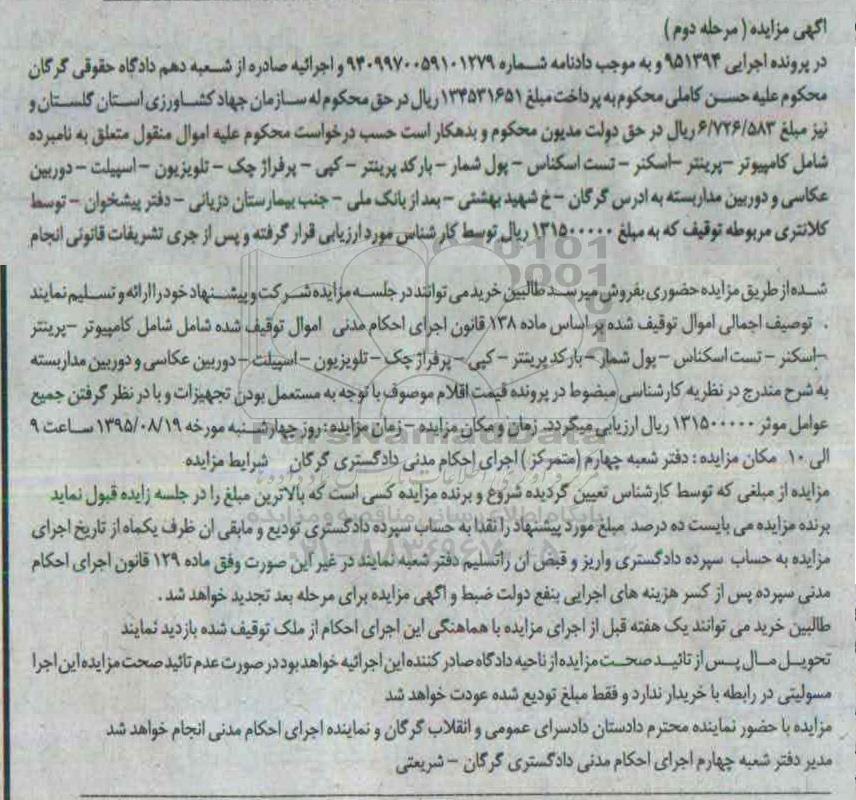 اگهی مزایده ( مرحله دوم )
در پرونده اجرایی ۹۵۱۳۹۴ و به موجب دادنامه شماره ۹۴۰۹۹۷۰۰۵۹۱۰۱۲۷۹ و اجرائیه صادره از شعبه دهم دادگاه حقوقی گرگان
محکوم علیه حسن کاملی محکوم به پرداخت مبلغ ۱۳۴۵۳۱۶۵۱ ریال در حق محکوم له سازمان جهاد کشاورزی استان گلستان و
نیز مبلغ ۶/۷۲۶/۵۸۳ ریال در حق دولت مدیون محکوم و بدهکار است حسب درخواست محکوم علیه اموال منقول متعلق به نامبرده
شامل کامپیوتر –پرینتر –اسکنر – تست اسکناس – پول شمار – بارکد پرینتر – کپی – پرفراژ چک – تلویزیون – اسپیلت – دوربین
عکاسی و دوربین مداربسته به ادرس گرگان – خ شهید بهشتی – بعد از بانک ملی – جنب بیمارستان دزیانی – دفتر پیشخوان – توسط
کلانتری مربوطه توقیف که به مبلغ ۱۳۱۵۰۰۰۰۰ ریال توسط کارشناس مورد ارزیابی قرار گرفته و پس از جری تشریفات قانونی انجام
شده از طریق مزایده حضوری بفروش میرسد طالبین خرید می توانند در جلسه مزایده شرکت و پیشنهاد خود را ارائه و تسلیم نمایند
. توصیف اجمالی اموال توقیف شده بر اساس ماده ۱۳۸ قانون اجرای احکام مدنی اموال توقیف شده شامل شامل کامپیوتر –پرینتر
–اسکنر – تست اسکناس – پول شمار – بارکد پرینتر – کپی – پرفراژ چک – تلویزیون – اسپیلت – دوربین عکاسی و دوربین مداربسته
به شرح مندرج در نظریه کارشناسی مبضوط در پرونده قیمت اقلام موصوف با توجه به مستعمل بودن تجهیزات و با در نظر گرفتن جمیع
عوامل موثر ۱۳۱۵۰۰۰۰۰ ریال ارزیابی میگردد. زمان و مکان مزایده – زمان مزایده : روز چهارشنبه مورخه ۱۳۹۵/۰۸/۱۹ ساعت ۹
الی ۱۰ مکان مزایده : دفتر شعبه چهارم (متمرکز ) اجرای احکام مدنی دادگستری گرگان شرایط مزایده
مزایده از مبلغی که توسط کارشناس تعیین گردیده شروع و برنده مزایده کسی است که بالاترین مبلغ را در جلسه زایده قبول نماید
برنده مزایده می بایست ده درصد مبلغ مورد پیشنهاد را نقدا به حساب سپرده دادگستری تودیع و مابقی ان ظرف یکماه از تاریخ اجرای
مزایده به حساب سپرده دادگستری واریز و قبض ان راتسلیم دفتر شعبه نمایند در غیر این صورت وفق ماده ۱۲۹ قانون اجرای احکام
مدنی سپرده پس از کسر هزینه های اجرایی بنفع دولت ضبط و اگهی مزایده برای مرحله بعد تجدید خواهد شد .
طالبین خرید می توانند یک هفته قبل از اجرای مزایده با هماهنگی این اجرای احکام از ملک توقیف شده بازدید نمایند
تحویل مال پس از تائید صحت مزایده از ناحیه دادگاه صادر کننده این اجرائیه خواهد بود در صورت عدم تائید صحت مزایده این اجرا
مسولیتی در رابطه با خریدار ندارد و فقط مبلغ تودیع شده عودت خواهد شد
مزایده با حضور نماینده محترم دادستان دادسرای عمومی و انقلاب گرگان و نماینده اجرای احکام مدنی انجام خواهد شد
مدیر دفتر شعبه چهارم اجرای احکام مدنی دادگستری گرگان – شریعتی